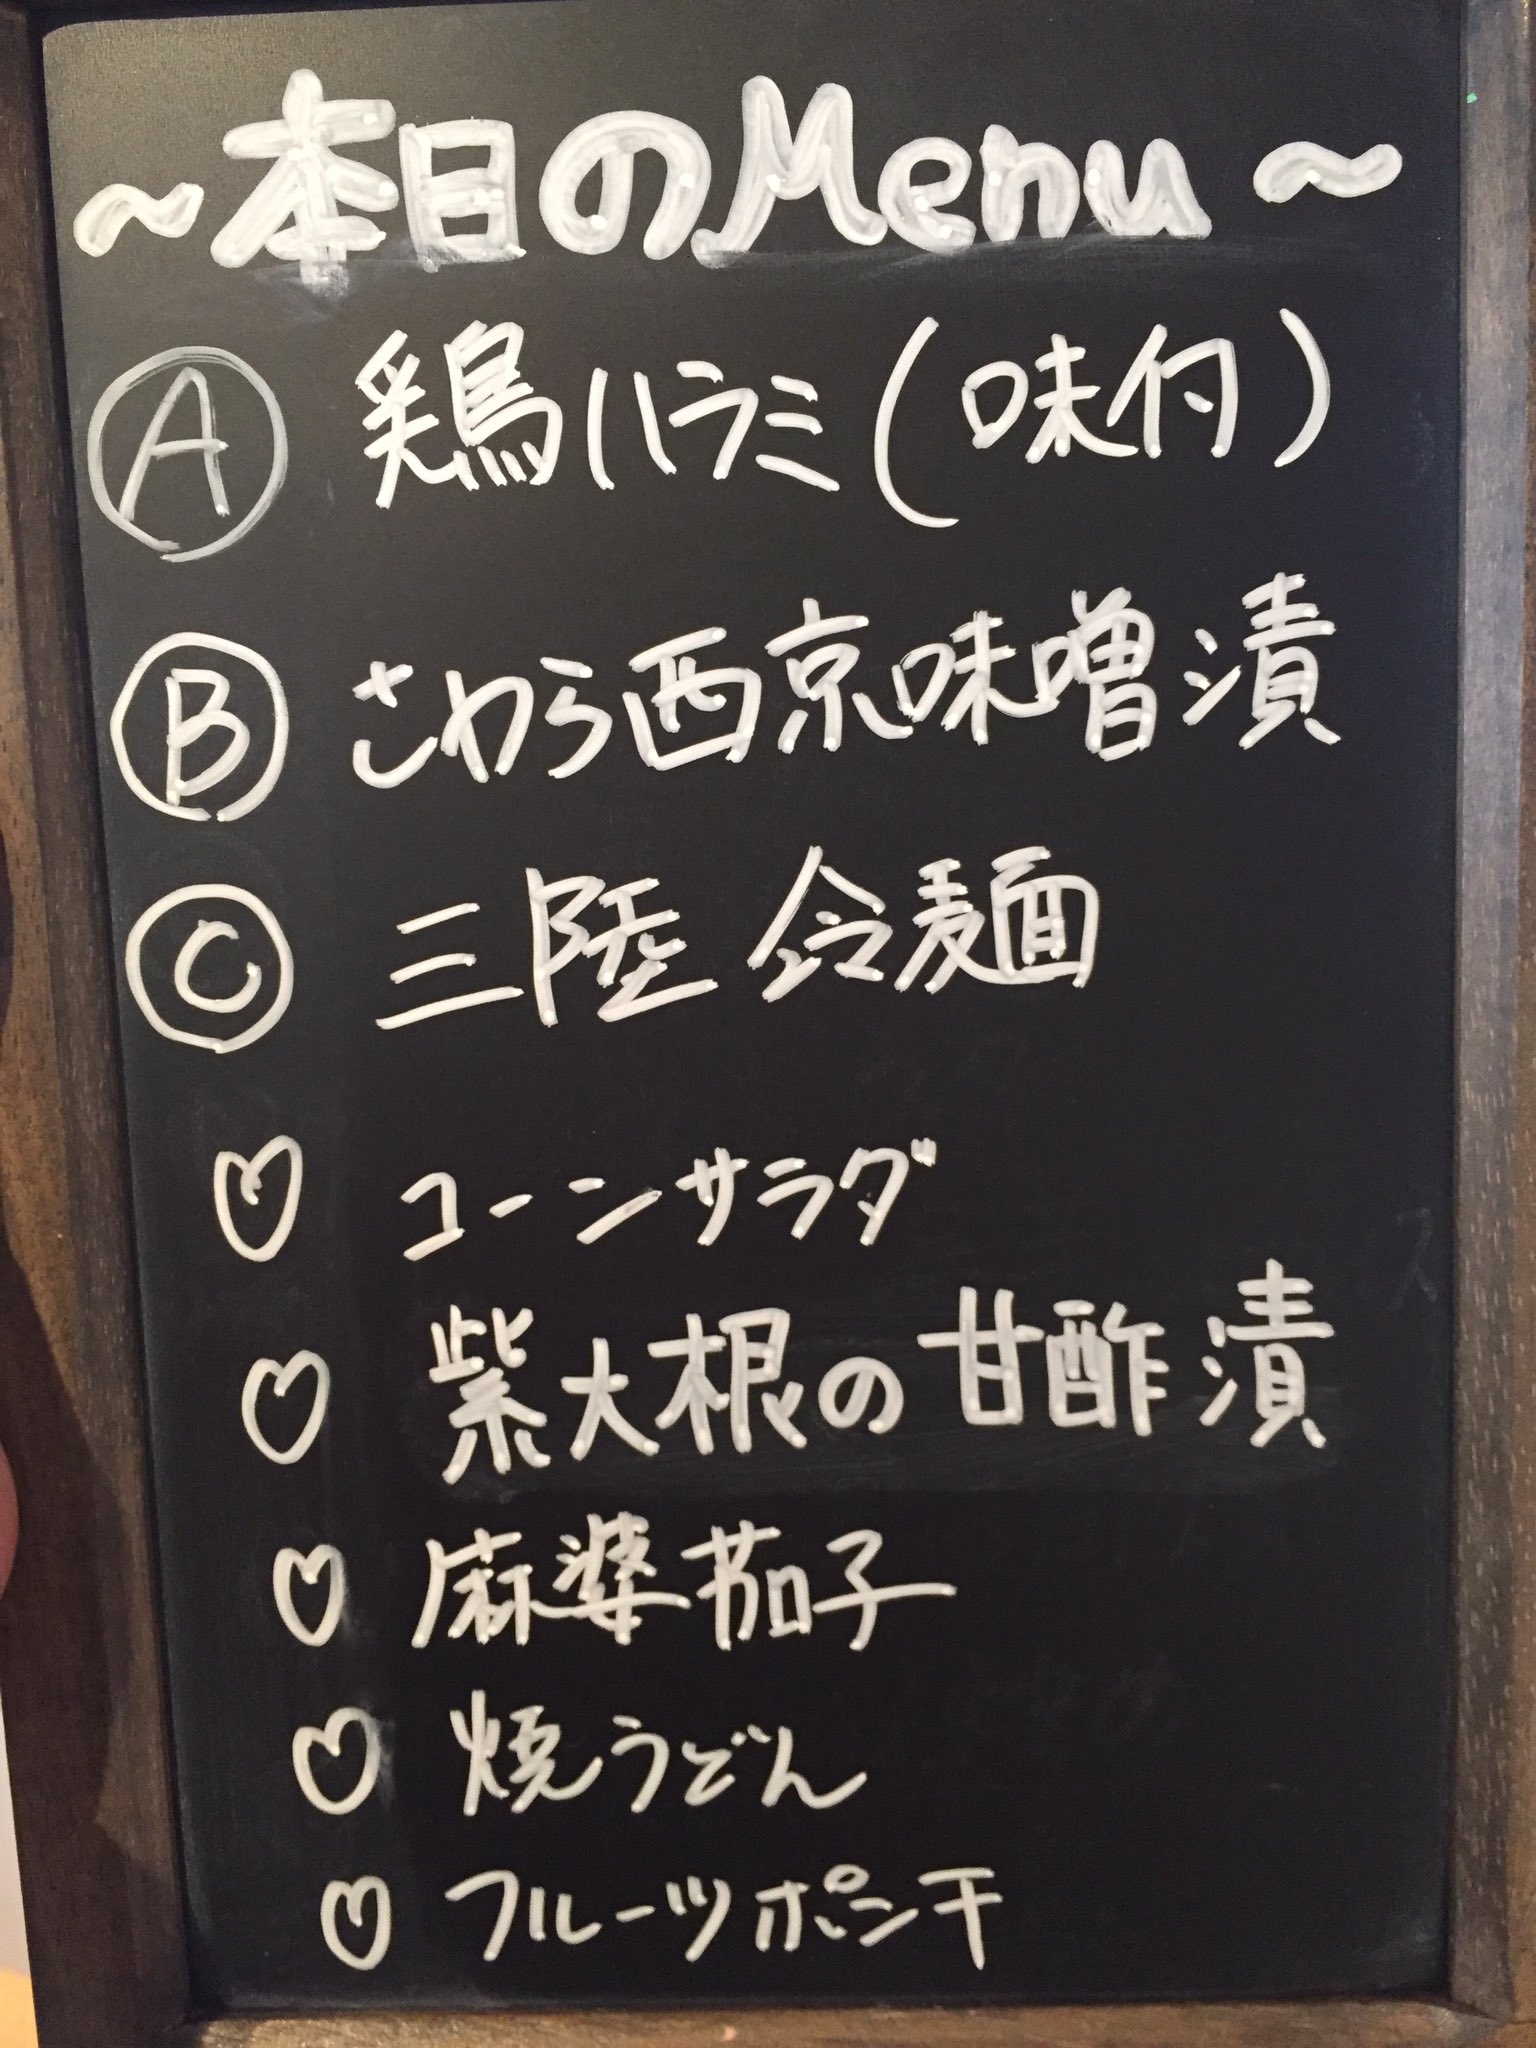 ~本日のMenu~
Ⓐ 鶏ハラミ(味付)
Ⓑ さわら西京味噌漬
Ⓒ 三陸 冷麺
♡ コーンサラダ
♡ 紫大根の甘酢漬
♡ 麻婆茄子
♡ 焼うどん
♡ フルーツポンチ